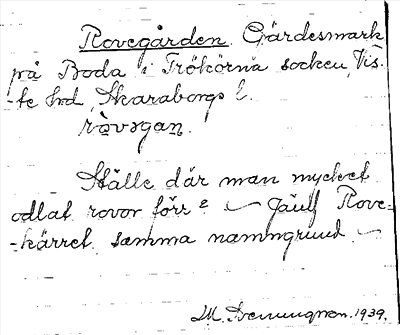 Rovegården. Gärdesmark
på Boda i Trökörna socken, Vis-
-te hd, Skaraborgs l.
ròvəgan.
Ställe där man mycket
odlat rovor förr? — Jämf Rove-
-kärret. samma namngrund. —
1939.